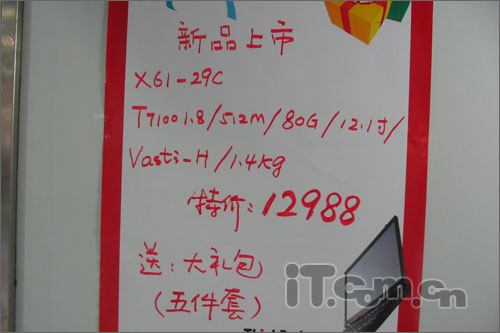 新品上市
X61-29C
T7100 1.8/512M/80G/12.1寸/
Vasti-H/1.4kg
特价:12988
送:大礼包
(五件套)
iT.com.cn